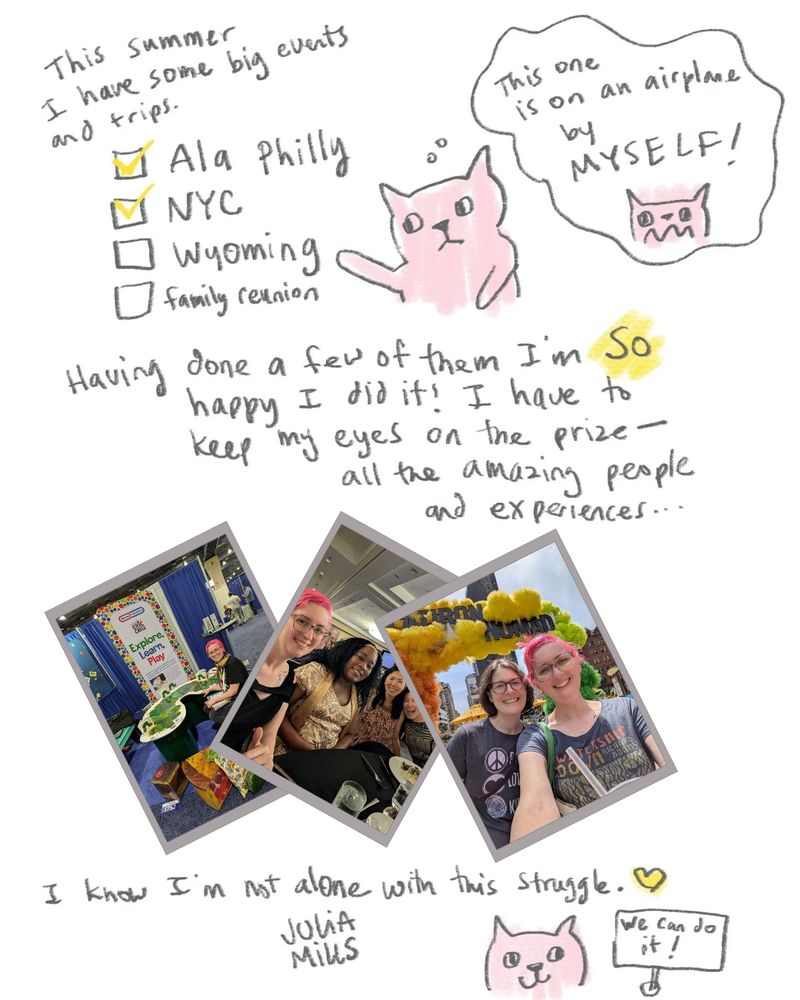 This summer
I have some big events
and trips.
Ala Philly
NYC
Wyoming
family reunion
This one
is on an airplane
by
MYSELF!
Having done a few of them I'm So
happy I did it! I have to
keep my eyes on the prize—
all the amazing people
and experiences...
Explore,
Learn,
Play
FLATIRON
NOMAD
WATERSHIP
DOWN
I know I'm not alone with this struggle.
JULIA
Mills
We can do
it!